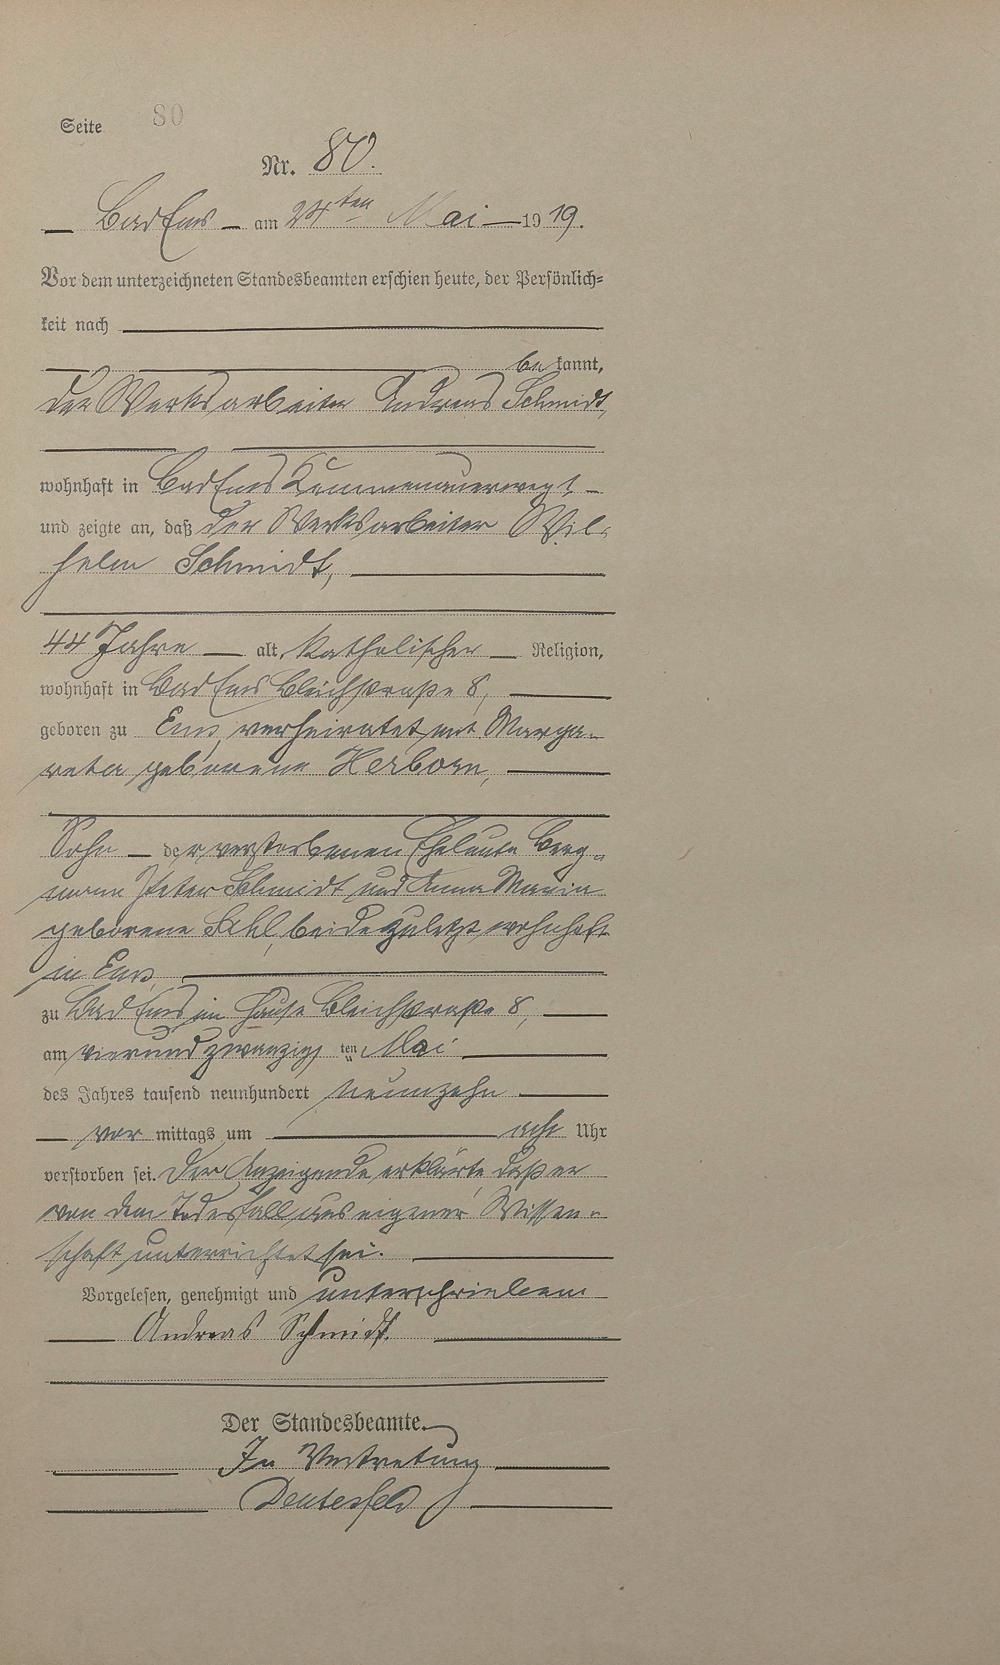 Seite 80
Nr. 80.
Bad Ems am 24ten Mai 1919.
Vor dem unterzeichneten Standesbeamten erschien heute, der Persönlich=
keit nach
be kannt,
der Werksarbeiter Andreas Schmidt,
wohnhaft in Bad Ems
und zeigte an, daß der Werksarbeiter Wil-
helm Schmidt,
44 Jahre alt, katholischer Religion,
wohnhaft in Bad Ems Bleichstraße 8,
geboren zu Ems, verheiratet mit Marga-
reta geborene Herborn,
Sohn der verstorbenen Eheleute Berg-
mann Peter Schmidt und Anna Maria
geborene beide zuletzt wohnhaft
in Ems,
zu Bad Ems im Hause Bleichstraße 8,
am vierundzwanzig ten Mai
des Jahres tausend neunhundert neunzehn
vor mittags um acht Uhr
verstorben sei. Der Anzeigende erklärte, daß er
von dem Todesfall aus eigener Wissen-
schaft unterrichtet sei.
Vorgelesen, genehmigt und unterschrieben
Andreas Schmidt.
Der Standesbeamte.
In Vertretung